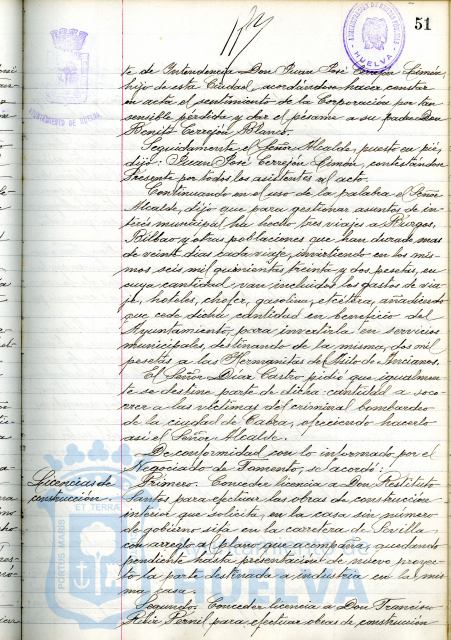 51
AYUNTAMIENTO DE HUELVA
HUELVA
te de Intendencia Don Juan José Cerrejón Limón,
hijo de esta Ciudad, acordándose hacer constar
en acta el sentimiento de la Corporación por tan
sensible pérdida y dar el pésame a su padre Don
Benito Cerrejón Blanco.
Seguidamente, el Señor Alcalde, puesto en pié,
dijo: Juan José Cerrejón Limón, contestándose
Presente por todos los asistentes al acto.
Continuando en el uso de la palabra el Señor
Alcalde, dijo que para gestionar asuntos de in-
terés municipal ha hecho tres viajes a Burgos,
Bilbao y otras poblaciones que han durado mas
de veinte dias cada viaje, invirtiendo en los mis-
mos seis mil quinientas treinta y dos pesetas, en
cuya cantidad van incluidos los gastos de via-
je, hoteles, chofer, gasolina, etcétera, añadiendo
que cede dicha cantidad en beneficio del
Ayuntamiento, para invertirla en servicios
municipales, destinando de la misma, dos mil
pesetas a las Hermanitas del Asilo de Ancianos.
El Señor Díaz Castro pidió que igualmen-
te se destine parte de dicha cantidad a soco-
rrer a las víctimas del criminal bombardeo
de la ciudad de Cabra, ofreciendo hacerlo
asi el Señor Alcalde.
De conformidad con lo informado por el
Negociado de Fomento, se acordó:
Licencias de
construcción.
Primero. Conceder licencia a Don Restituto
Santos para efectuar las obras de construcción
interior que solicita, en la casa sin número
de gobierno sita en la carretera de Sevilla
con arreglo al plano que acompaña quedando
pendiente hasta presentacion de nuevo proyec-
to la parte destinada a industria en la mis-
ma casa.
Segundo. Conceder licencia a Don Francisco
Feliz Pernil para efectuar obras de construcción
PORTUS MARIS
ET TERRA
Ayuntamiento de
HUELVA